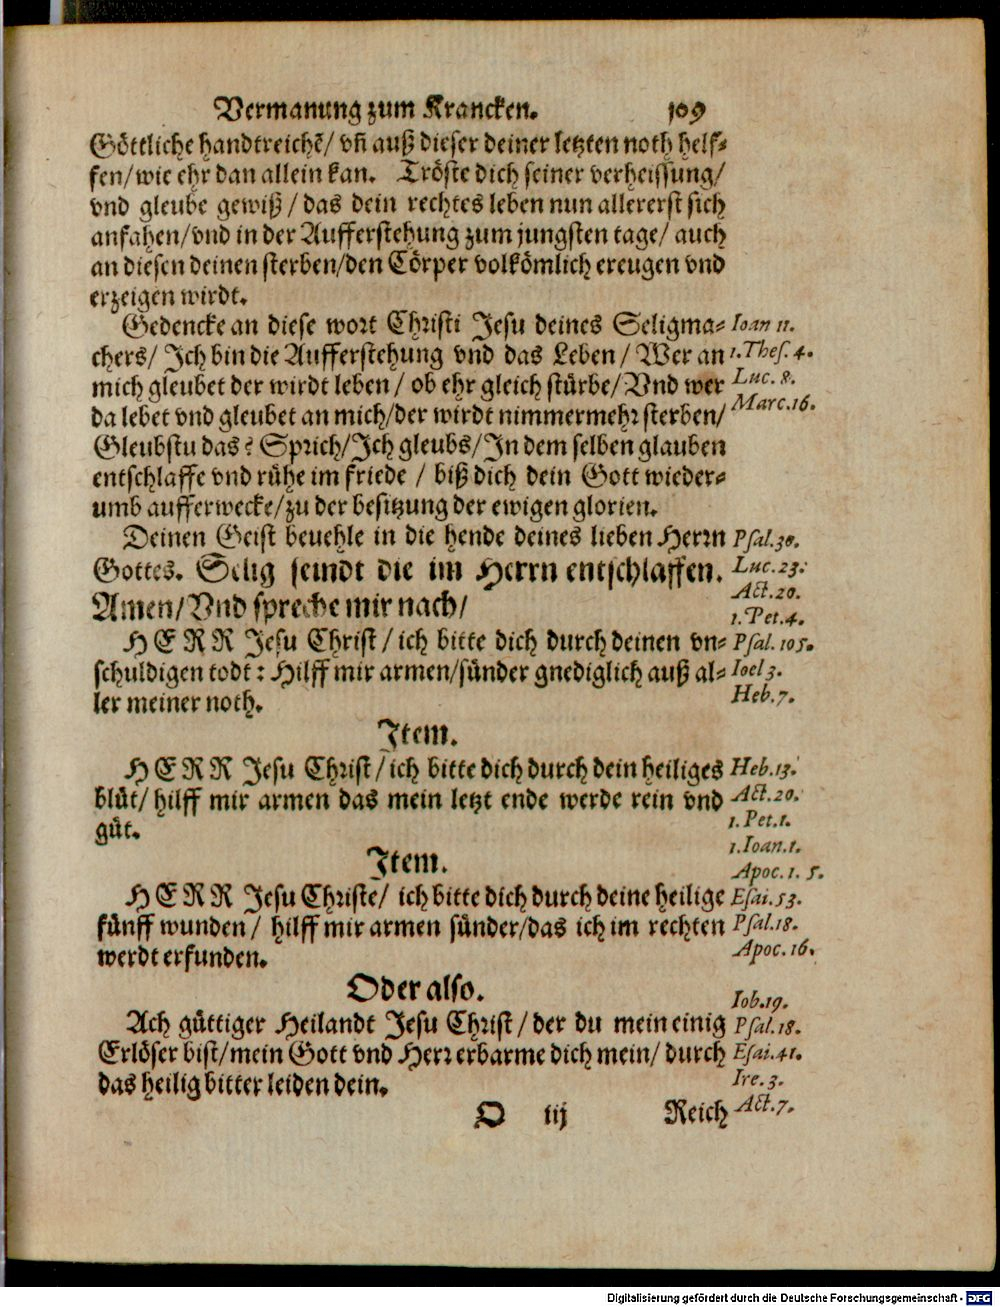 Vermanung zum Krancken. 109
Göttliche handtreichẽ/ vñ auß dieser deiner letzten noth helf-
fen/wie ehr dan allein kan. Tröste dich seiner verheissung/
vnd gleube gewiß / das dein rechtes leben nun allererst sich
anfahen/vnd in der Aufferstehung zum jungsten tage/ auch
an diesen deinen sterben/den Cörper volkömlich ereugen vnd
erzeigen wirdt.
Gedencke an diese wort Christi Jesu deines Seligma- Ioan 11.
chers/ Ich bin die Aufferstehung vnd das Leben / Wer an 1. Thes. 4.
mich gleubet der wirdt leben / ob ehr gleich stürbe/Vnd wer Luc. 8.
da lebet vnd gleubet an mich/der wirdt nimmermehr sterben/ Marc. 16.
Gleubstu das? Sprich/Ich gleubs/In dem selben glauben
entschlaffe vnd rühe im friede / biß dich dein Gott wieder-
umb aufferwecke/zu der besitzung der ewigen glorien.
Deinen Geist beuehle in die hende deines lieben Herrn Psal. 30.
Gottes. Selig seindt die im Herrn entschlaffen. Luc. 23.
Act. 20.
Amen/Vnd spreche mir nach/
1. Pet. 4.
HERR Jesu Christ/ich bitte dich durch deinen vn- Psal. 105.
schuldigen todt: Hilff mir armen/sünder gnediglich auß al- Ioel 3.
ler meiner noth. Heb. 7.
Item.
HERR Jesu Christ/ich bitte dich durch dein heiliges Heb. 13.
blüt/ hilff mir armen das mein letzt ende werde rein vnd Act. 20.
güt. 1. Pet. 1.
1. Ioan. 1.
Item.
Apoc. 1. 5.
HERR Jesu Christe/ ich bitte dich durch deine heilige Esai. 53.
fünff wunden/ hilff mir armen sünder/das ich im rechten Psal. 18.
werdt erfunden. Apoc. 16.
Oder also.
Iob. 19.
Ach güttiger Heilandt Jesu Christ/der du mein einig Psal. 18.
Erlöser bist/mein Gott vnd Herr erbarme dich mein/ durch Esai. 41.
das heilig bitter leiden dein. Ire. 3.
O iij Reich Act. 7.
Digitalisierung gefördert durch die Deutsche Forschungsgemeinschaft - DFG